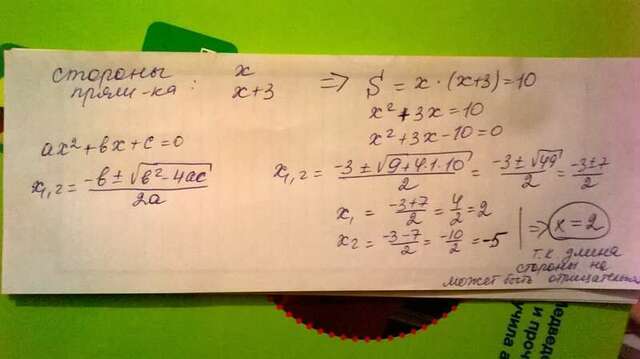 стороны x
прям-ка: x+3
=> S = x · (x+3) = 10
x² + 3x = 10
x² + 3x - 10 = 0
ax² + bx + c = 0
x₁,₂ = (-b ± √(b² - 4ac)) / 2a
x₁,₂ = (-3 ± √(9+4·1·10)) / 2 = (-3 ± √49) / 2 = (-3 ± 7) / 2
x₁ = (-3+7)/2 = 4/2 = 2
x₂ = (-3-7)/2 = -10/2 = -5
=> x = 2
т.к. длина
стороны не
может быть отрицательна
медведе
и проч
учила а